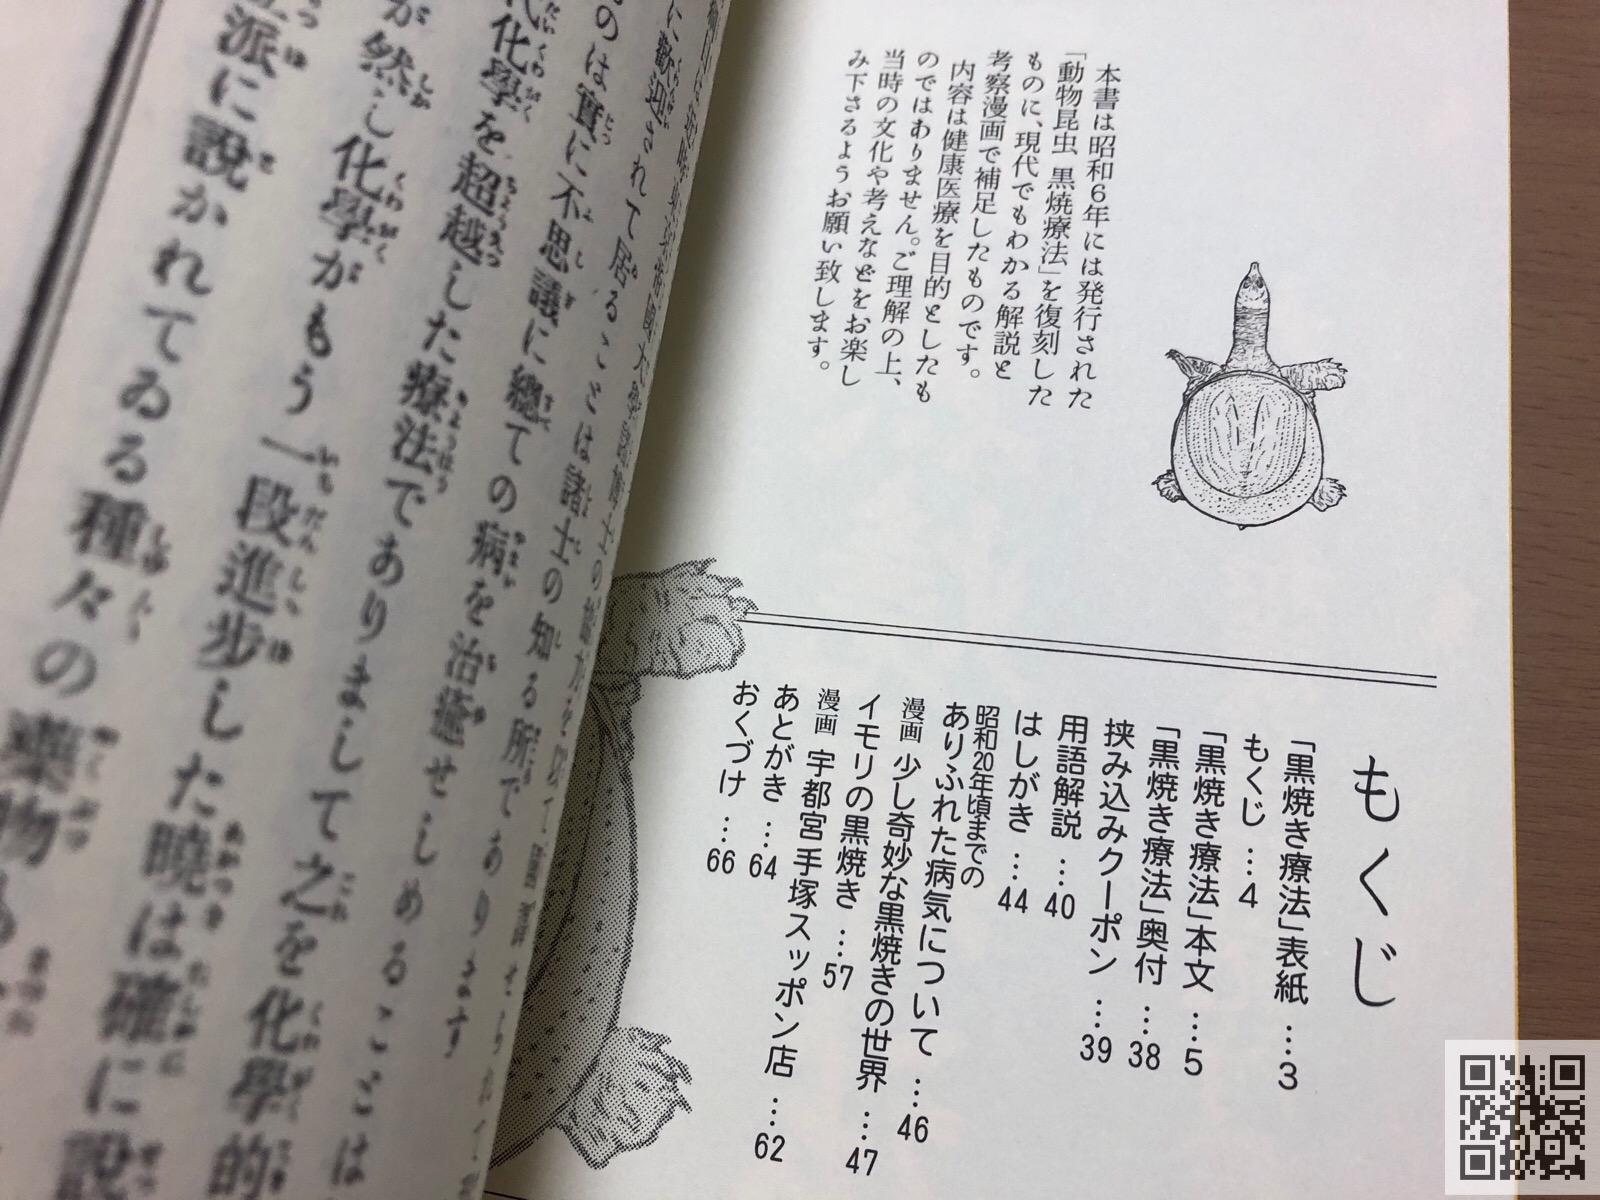 本書は昭和６年には発行された
「動物昆虫 黒焼療法」を復刻した
ものに、現代でもわかる解説と
考察漫画で補足したものです。
内容は健康医療を目的としたも
のではありません。ご理解の上、
当時の文化や考えなどをお楽し
み下さるようお願い致します。
もくじ
「黒焼き療法」表紙 …3
もくじ …4
「黒焼き療法」本文 …5
「黒焼き療法」奥付 …38
挟み込みクーポン …39
用語解説 …40
はしがき …44
昭和20年頃までの
ありふれた病気について …46
漫画 少し奇妙な黒焼きの世界 …47
イモリの黒焼き …57
漫画 宇都宮手塚スッポン店 …62
あとがき …64
おくづけ …66
に歡迎されて居ることは諸士の知る所であります
のは實に不思議に總ての病を治癒せしめることは
代化學を超越した療法でありまして之を化學的
が然し化學がもう一段進步した曉は確に說
派に說かれてゐる種々の藥物